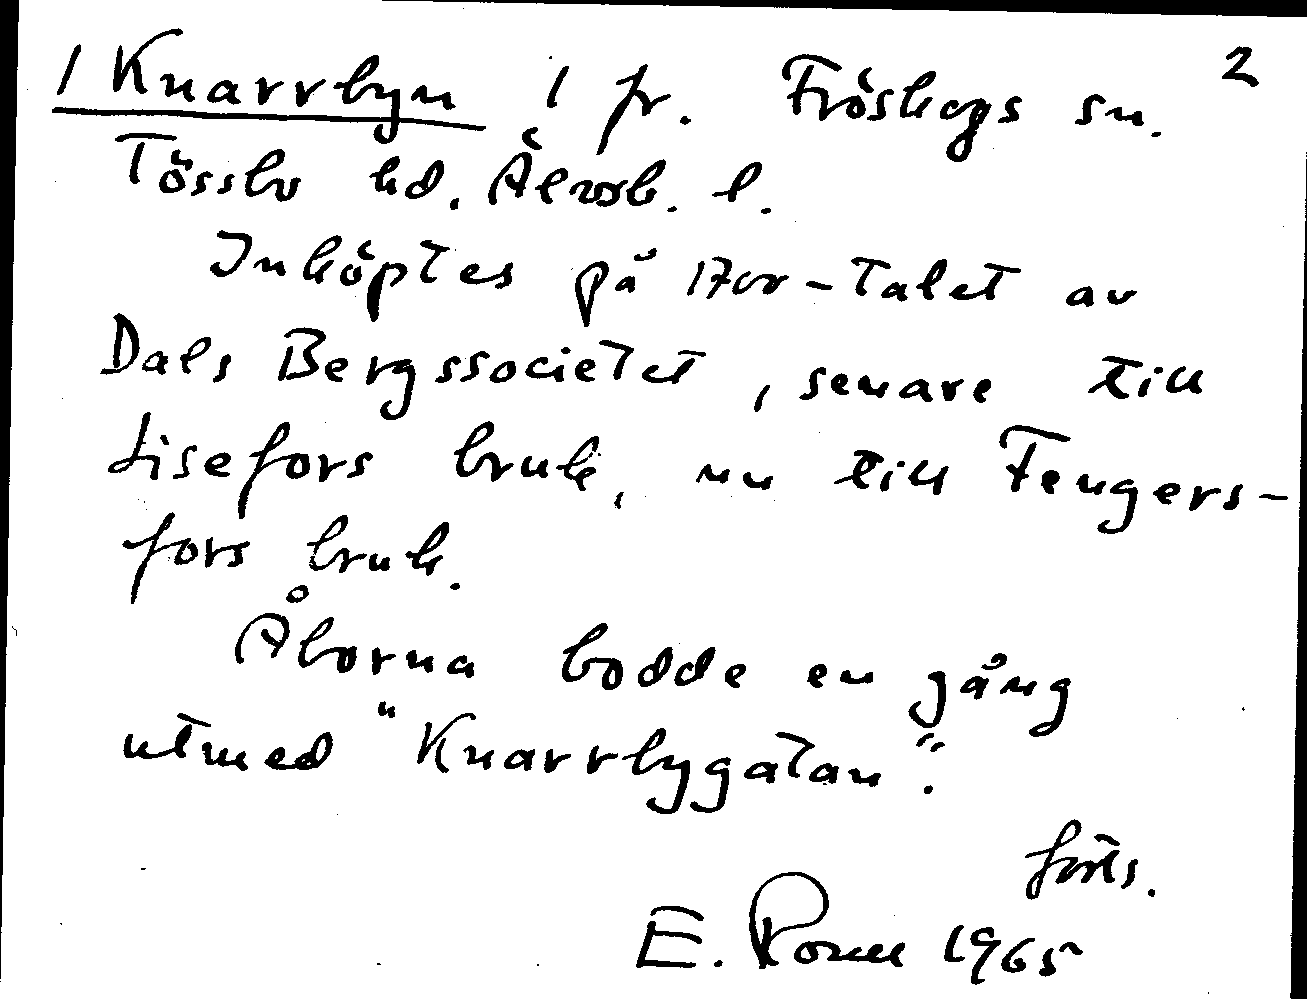 / Knarrbyn / fr. Fröskogs sn. 2
Tössbo hd. Älvsb. l.
Inköptes på 1700-talet av
Dals Bergssocietet, senare till
Lisefors bruk, nu till Fengers-
fors bruk.
Åborna bodde en gång
utmed "Knarrbygatan".
forts.
E. 1965